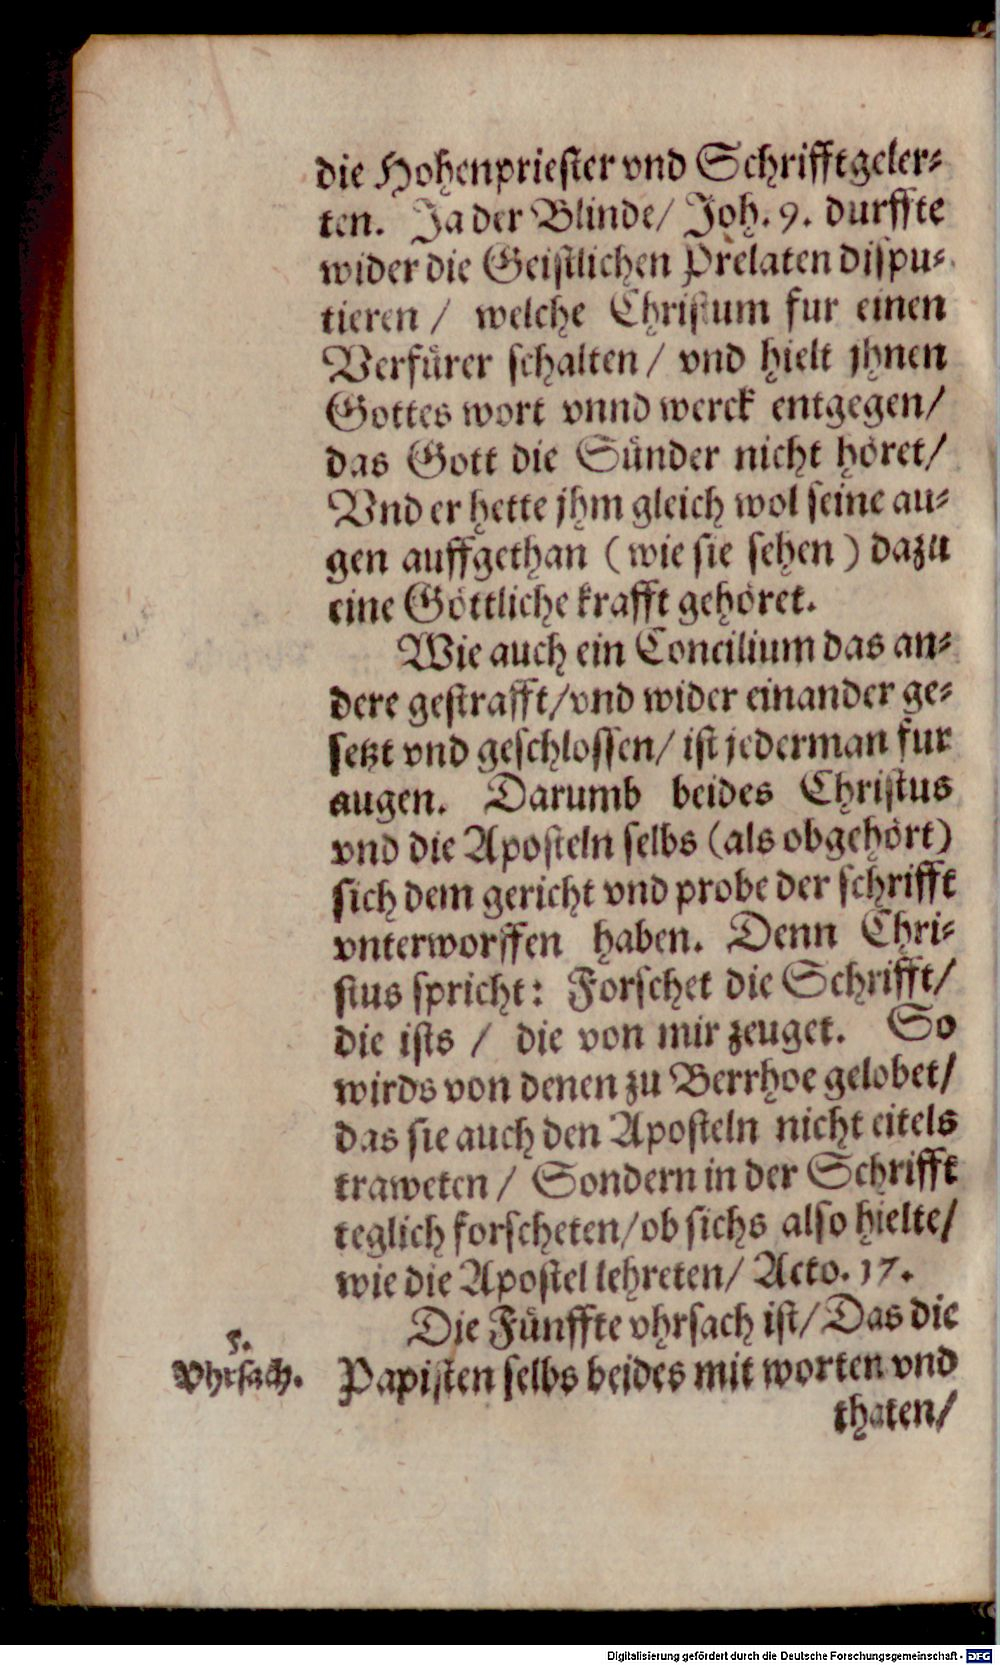 die Hohenpriester vnd Schrifftgeler-
ten. Ja der Blinde/ Joh. 9. durffte
wider die Geistlichen Prelaten dispu-
tieren / welche Christum fur einen
Verfürer schalten / vnd hielt jhnen
Gottes wort vnnd werck entgegen/
das Gott die Sünder nicht höret/
Vnd er hette jhm gleich wol seine au-
gen auffgethan (wie sie sehen) dazu
eine Göttliche krafft gehöret.
Wie auch ein Concilium das an-
dere gestrafft/vnd wider einander ge-
setzt vnd geschlossen/ ist jederman fur
augen. Darumb beides Christus
vnd die Aposteln selbs (als obgehört)
sich dem gericht vnd probe der schrifft
vnterworffen haben. Denn Chri-
stus spricht: Forschet die Schrifft/
die ists / die von mir zeuget. So
wirds von denen zu Berrhoe gelobet/
das sie auch den Aposteln nicht eitels
traweten / Sondern in der Schrifft
teglich forscheten/ob sichs also hielte/
wie die Apostel lehreten/ Acto. 17.
Die Fünffte vhrsach ist/ Das die
5.
Vhrsach.
Papisten selbs beides mit worten vnd
thaten/
Digitalisierung gefördert durch die Deutsche Forschungsgemeinschaft - DFG